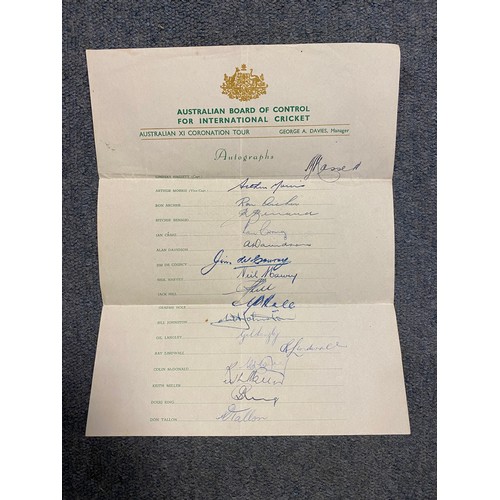 AUSTRALIAN BOARD OF CONTROL
FOR INTERNATIONAL CRICKET
AUSTRALIAN XI CORONATION TOUR GEORGE A. DAVIES, Manager
Autographs
LINDSAY HASSETT (Capt.) Hassett
ARTHUR MORRIS Arthur Morris
RON ARCHER Ron Archer
RICHIE BENAUD R Benaud
IAN CRAIG Ian Craig
ALAN DAVIDSON A Davidson
JIM DE COURCY Jim de Courcy
NEIL HARVEY Neil Harvey
JACK HILL J Hill
GRAEME HOLE G Hole
BILL JOHNSTON Johnston
GIL LANGLEY G Langley
RAY LINDWALL R Lindwall
COLIN McDONALD
KEITH MILLER K Miller
DOUG RING D Ring
DON TALLON D Tallon